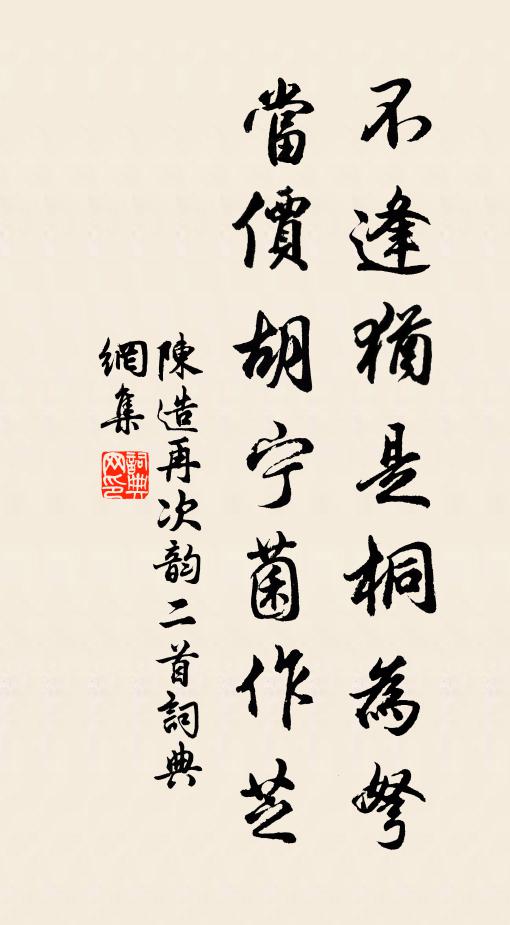 不逢猶是桐為弩
當價胡宁菌作芝
陳造再次韵二首詞典
網集
詞典网印